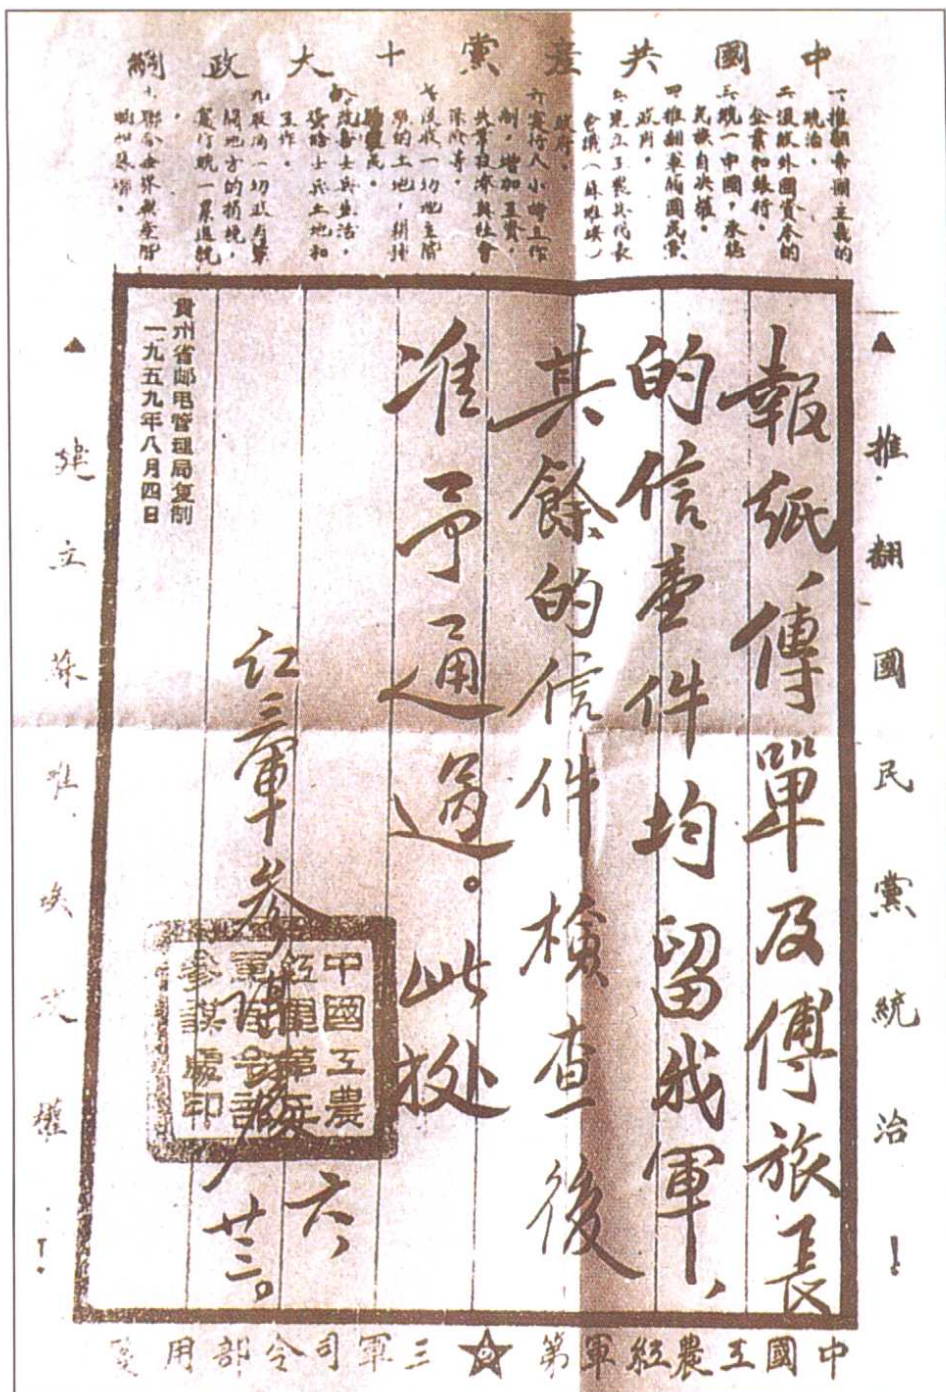 中國共產黨十大政綱
一、推翻帝國主義的
統治。
二、沒收外國資本的
企業和銀行。
三、統一中國，承認
民族自決權。
四、推翻軍閥國民黨
政府。
五、建立工農兵代表
會議（蘇維埃）
政府。
六、實行八小時工作
制，增加工資，
失業救濟與社會
保險等。
七、沒收一切地主階
級的土地，耕地
歸農民。
八、改善士兵生活，
發給士兵土地和
工作。
九、取消一切政府軍
閥地方的捐稅，
實行統一累進稅
十、聯合世界無產階
和蘇聯。
▲推翻國民黨統治！
報紙、傳單及傅旅長
的信壹件均留我軍、
其餘的信件檢查後
准予通過。此致
紅三軍參謀
六、廿三。
中國工農
紅軍第三
軍司令部
參謀處印
貴州省邮电管理局复制
一九五九年八月四日
▲建立蘇維埃政權！
中國工農紅軍第三軍司令部用箋